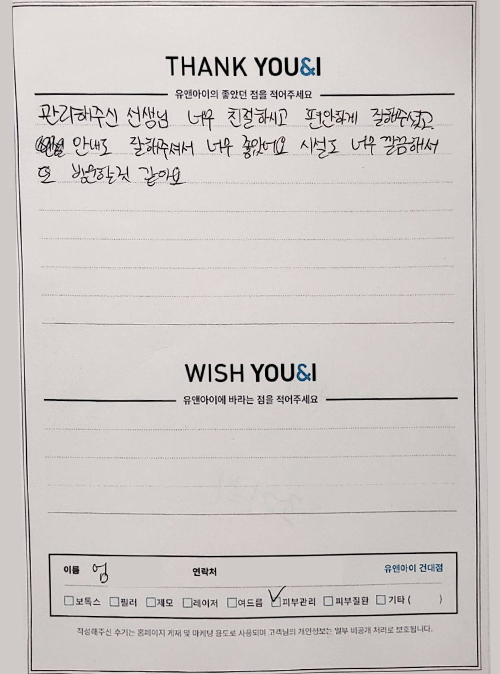 THANK YOU&I
유앤아이의 좋았던 점을 적어주세요
관리해주신 선생님 너무 친절하시고 편안하게 잘해주셨고
안내도 잘해주셔서 너무 좋았어요 시설도 너무 깔끔해서
또 방문할것 같아요
WISH YOU&I
유앤아이에 바라는 점을 적어주세요
이름 엄 연락처 유앤아이 건대점
☐보톡스 ☐필러 ☐제모 ☐레이저 ☐여드름 ☑피부관리 ☐피부질환 ☐기타 ( )
작성해주신 후기는 홈페이지 게재 및 마케팅 용도로 사용되며 고객님의 개인정보는 일부 비공개 처리로 보호됩니다.